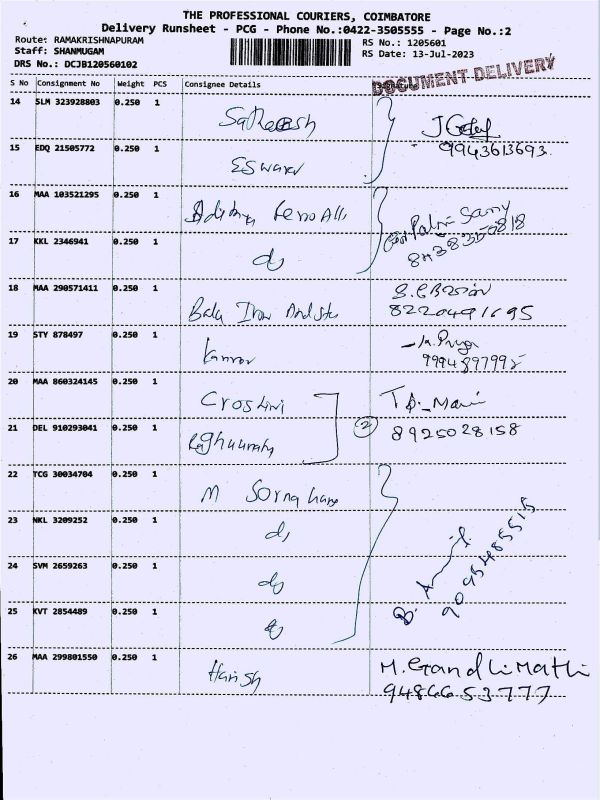 THE PROFESSIONAL COURIERS, COIMBATORE
Delivery Runsheet - PCG - Phone No.:0422-3505555 - Page No.:2
Route: RAMAKRISHNAPURAM
RS No.: 1205601
Staff: SHANMUGAM
RS Date: 13-Jul-2023
DRS No.: DCJB120560102
DOCUMENT DELIVERY
S No Consignment No Weight PCS Consignee Details
14 SLM 323928803 0.250 1
Satheesh
9943613693
15 EDQ 21505772 0.250 1
Eswarar
16 MAA 103521295 0.250 1
Palni Samy
17 KKL 2346941 0.250 1
do
18 MAA 290571411 0.250 1
Bala Iron And
8220491695
19 STY 878497 0.250 1
Kannan
9994897992
20 MAA 860324145 0.250 1
T.D. Mani
21 DEL 910293041 0.250 1
2
8925028158
22 TCG 30034704 0.250 1
M
23 NKL 3209252 0.250 1
do
24 SVM 2659263 0.250 1
do
9095485515
25 KVT 2854489 0.250 1
do
26 MAA 299801550 0.250 1
Harish
M. Gandhi Mathi
9486653777